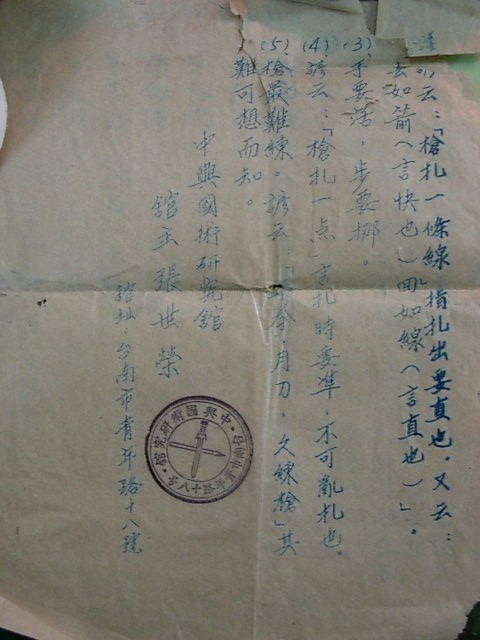 云：「槍扎一條線」指扎出要直也。又云：
去如箭（言快也）回如線（言直也）」。
(3)手要活，步要挪。
(4)諺云：「槍扎一点」言扎時要準，不可亂扎也。
(5)槍最難練。諺云：「年拳，月刀，久練槍」其
難可想而知。
中興國術研究館
舘主 張世榮
舘址：台南市青年路十八號
中興國術研究館
青年路十八號